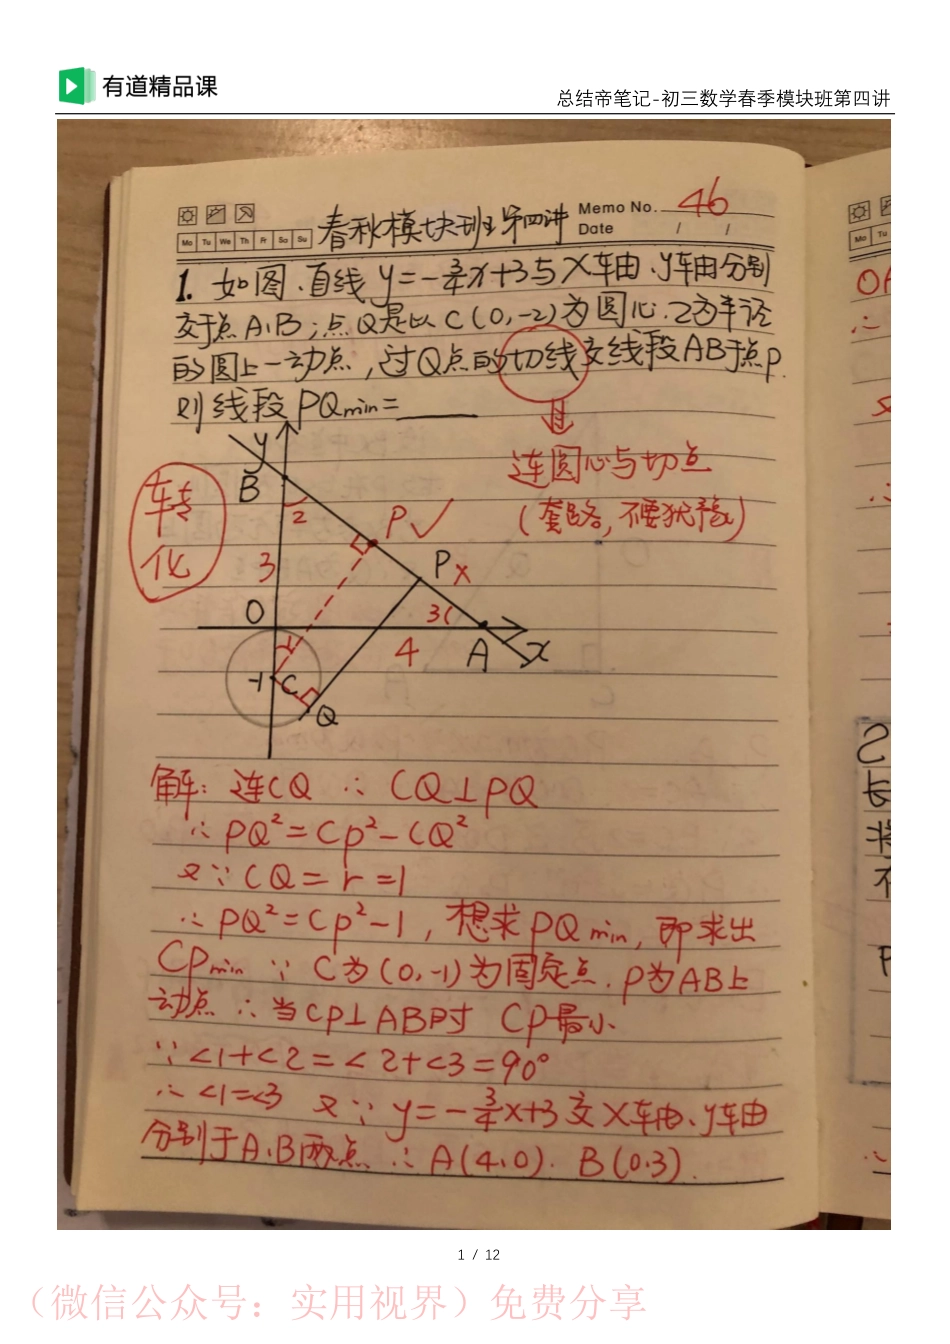 有道精品课
总结帝笔记-初三数学春季模块班第四讲
Memo No. 46
Mo Tu We Th Fr Sa Su 春秋模块班第四讲 Date / /
1. 如图.直线 y=-3/4x+3与X车由、y车由分别
交于点A、B;点Q是以C(0,-2)为圆心.2为半径
的圆上一动点,过Q点的切线交线段AB于点P.
则线段PQmin=____
连圆心与切点
(套路,不要犹豫)
转
化
y
B
2
P✓
3
P x
O
3
4
A
x
1
-1
C
Q
解:连CQ ∴ CQ⊥PQ
∴ PQ²=CP²-CQ²
又∵ CQ=r=1
∴ PQ²=CP²-1,想求PQmin,即求出
CPmin ∵ C为(0,-1)为固定点.P为AB上
动点 ∴ 当CP⊥AB时 CP最小
∵∠1+∠2=∠2+∠3=90°
∴ ∠1=∠3 又∵ y=-3/4x+3交X车由、y车由
分别于A、B两点 ∴ A(4,0). B(0.3).
Mo Tu
乙
长
1 / 12
(微信公众号:实用视界)免费分享